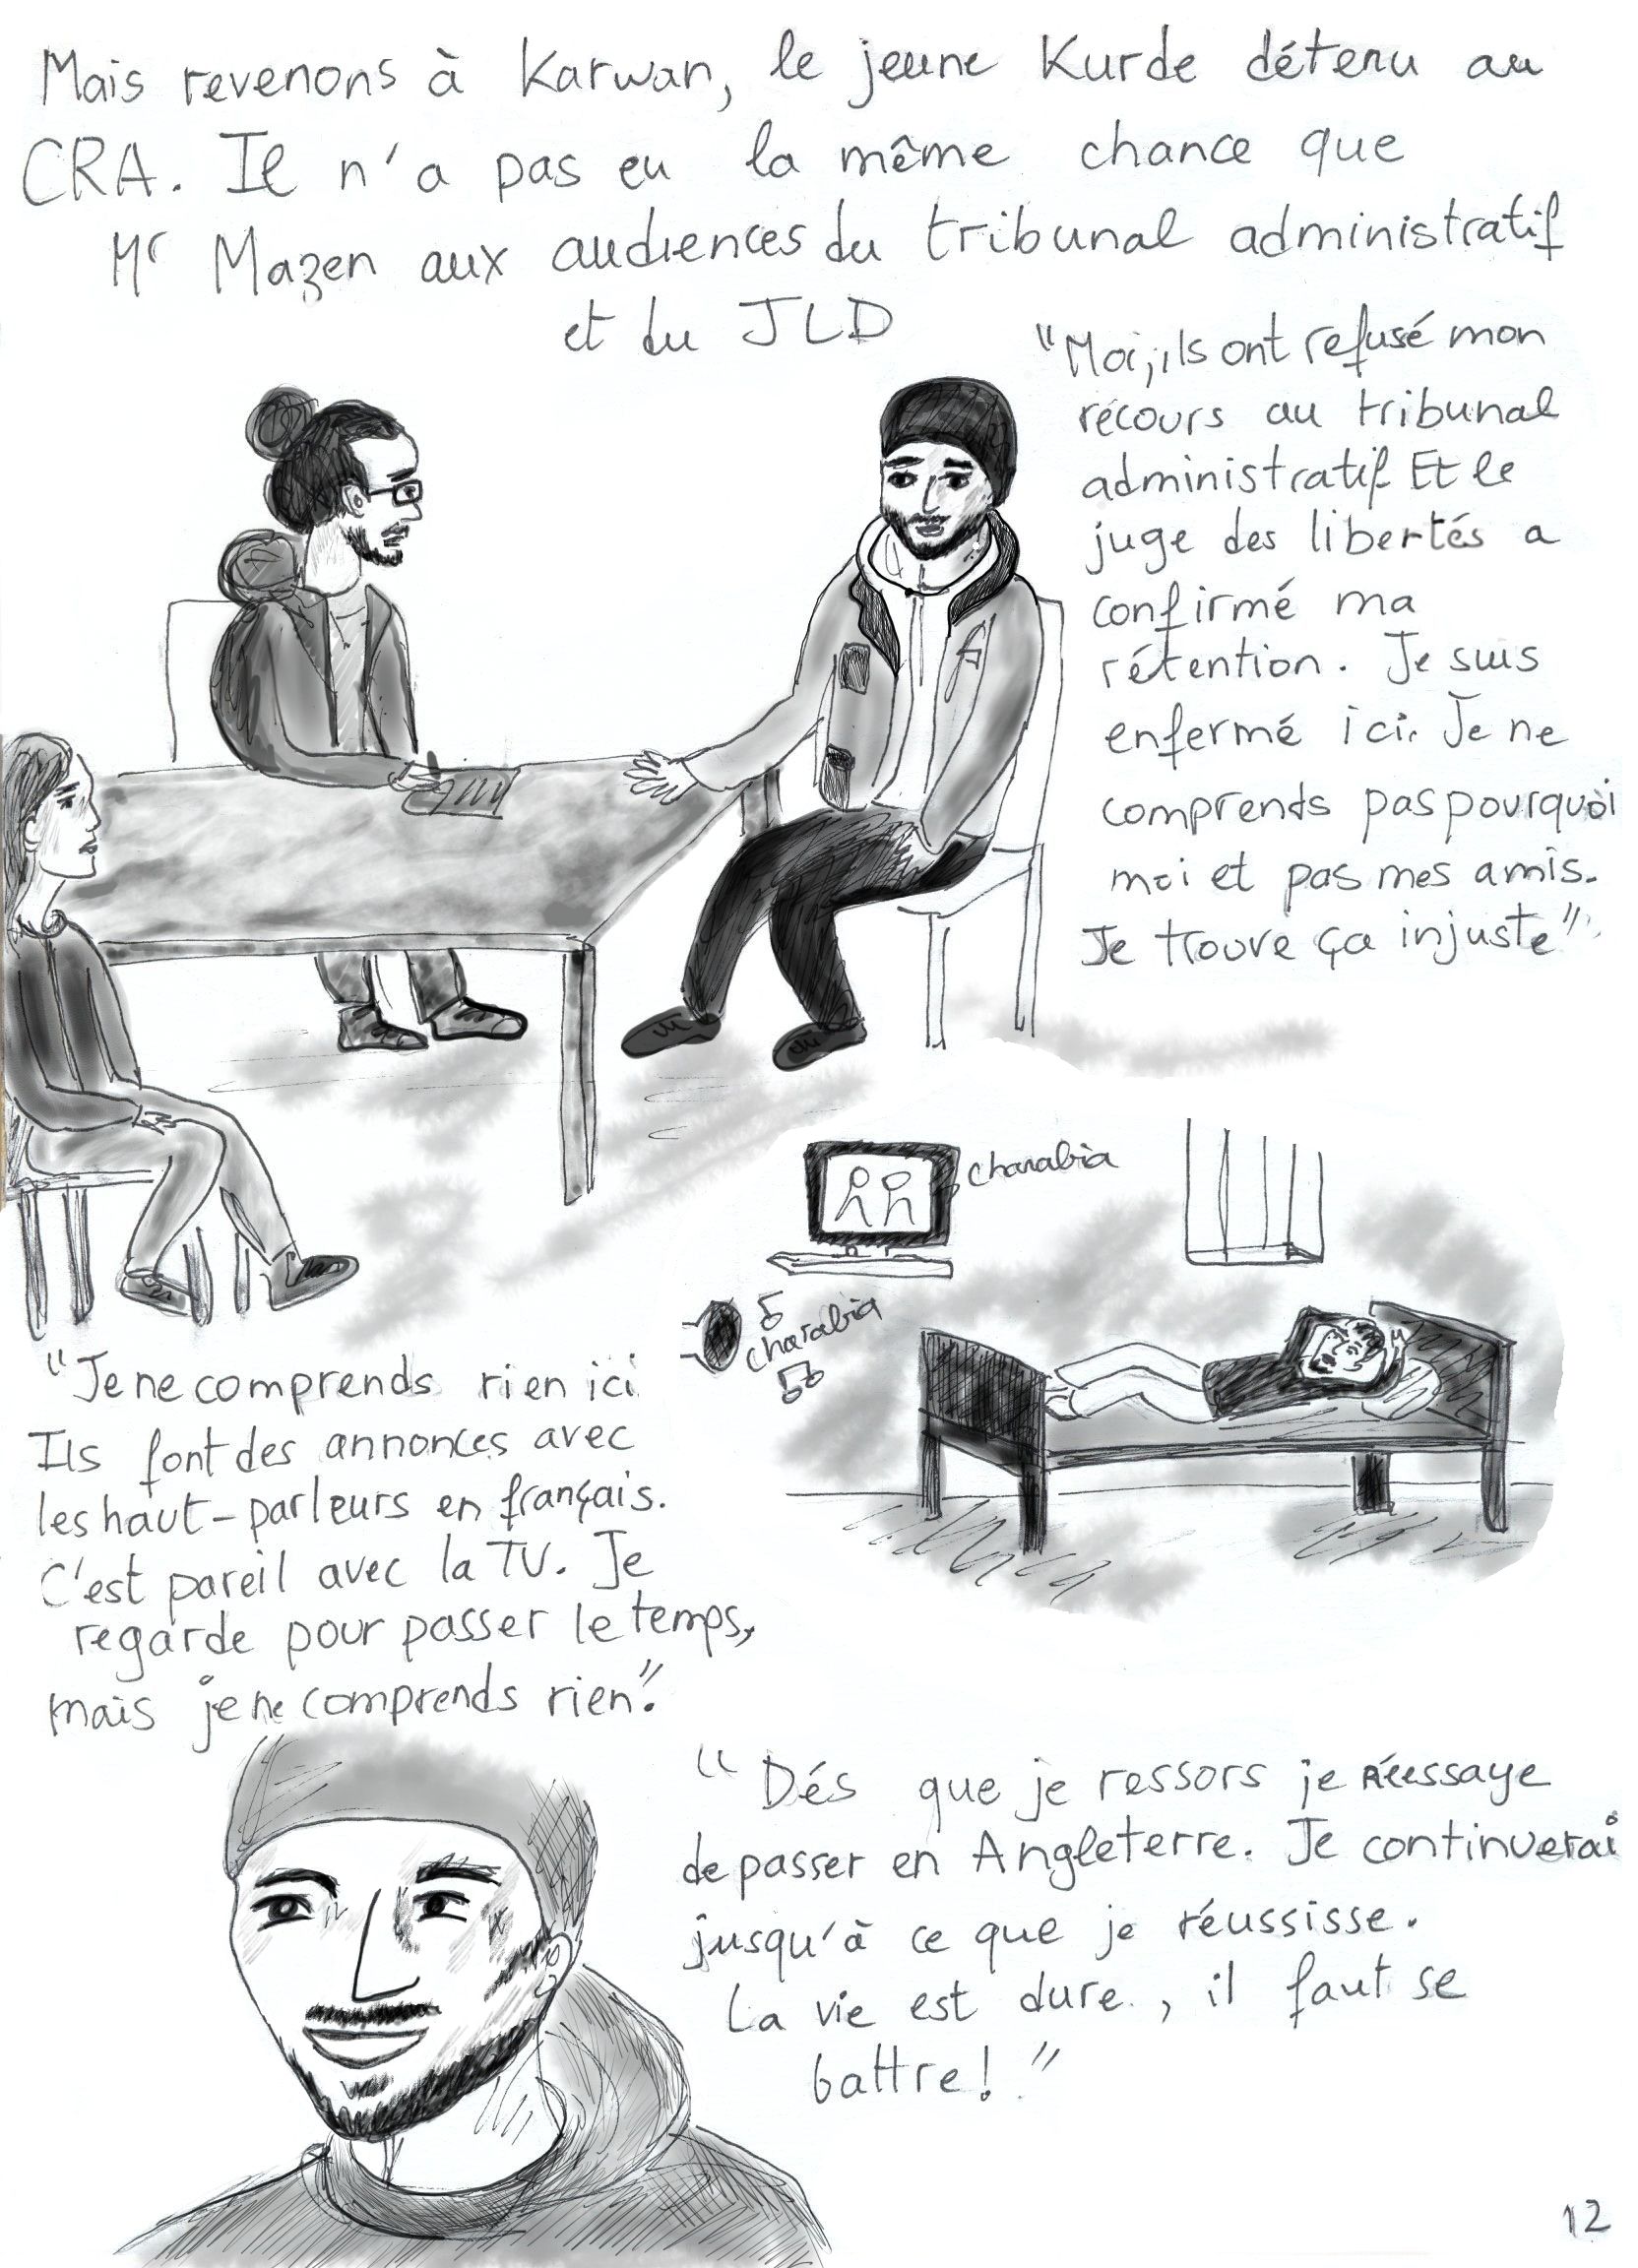 Mais revenons à Karwan, le jeune Kurde détenu au
CRA. Il n'a pas eu la même chance que
Mr Mazen aux audiences du tribunal administratif
et du JLD
"Moi, ils ont refusé mon
récours au tribunal
administratif Et le
juge des libertés a
confirmé ma
rétention. Je suis
enfermé ici. Je ne
comprends pas pourquoi
moi et pas mes amis.
Je trouve ça injuste".
charabia
charabia
"Je ne comprends rien ici
Ils font des annonces avec
les haut-parleurs en français.
C'est pareil avec la TV. Je
regarde pour passer le temps,
mais je ne comprends rien".
"Dés que je ressors je réessaye
de passer en Angleterre. Je continuerai
jusqu'à ce que je réussisse.
La vie est dure, il faut se
battre!"
12